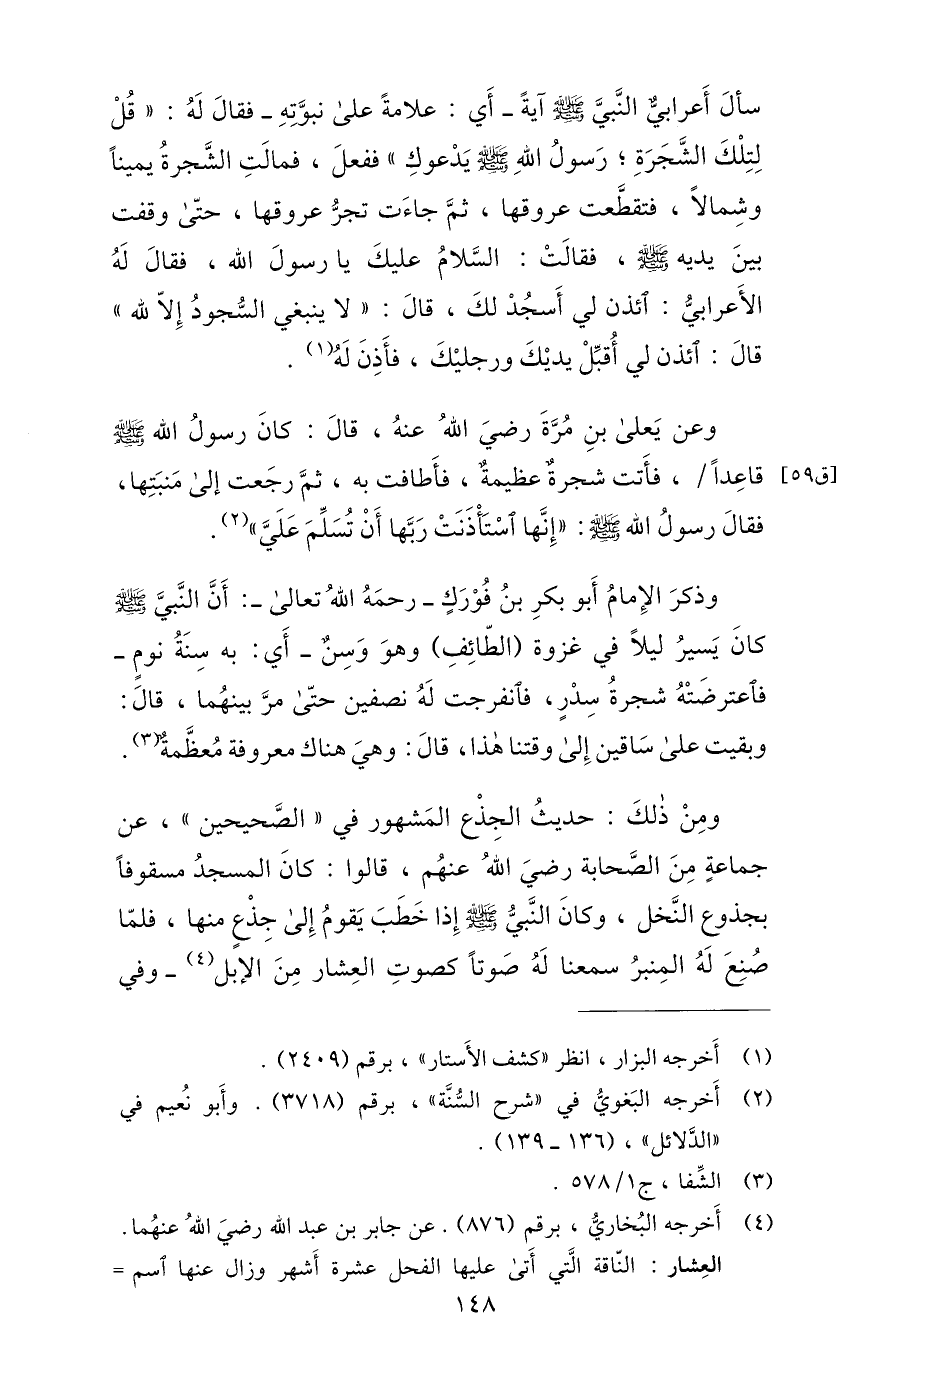 سألَ أَعرابيٌّ النَّبيَّ ﷺ آيةً ـ أَي : علامةً علىٰ نبوَّتِهِ ـ فقالَ لَهُ : « قُلْ
لِتِلْكَ الشَّجَرَةِ ؛ رَسولُ اللهِ ﷺ يَدْعوكِ » ففعلَ ، فمالَتِ الشَّجرةُ يميناً
وشِمالاً ، فتقطَّعت عروقها ، ثمَّ جاءَت تجرُّ عروقها ، حتّىٰ وقفت
بينَ يديه ﷺ ، فقالَتْ : السَّلامُ عليكَ يا رسولَ الله ، فقالَ لَهُ
الأَعرابيُّ : ٱئذن لي أَسجُدْ لكَ ، قالَ : « لا ينبغي السُّجودُ إِلاّ لله »
قالَ : ٱئذن لي أُقبِّلْ يديْكَ ورجليْكَ ، فأَذِنَ لَهُ(١) .
وعن يَعلىٰ بنِ مُرَّةَ رضيَ اللهُ عنهُ ، قالَ : كانَ رسولُ الله ﷺ
[ق٥٩] قاعِداً/ ، فأَتت شجرةٌ عظيمةٌ ، فأَطافت به ، ثمَّ رجَعت إلىٰ مَنبَتِها،
فقالَ رسولُ الله ﷺ: «إِنَّها ٱسْتَأْذَنَتْ رَبَّها أَنْ تُسَلِّمَ عَلَيَّ»(٢).
وذكرَ الإِمامُ أَبو بكرِ بنُ فُوْرَكٍ ـ رحمَهُ اللهُ تعالىٰ ـ: أَنَّ النَّبيَّ ﷺ
كانَ يَسيرُ ليلاً في غزوة (الطّائِفِ) وهوَ وَسِنٌ ـ أَي: به سِنَةُ نومٍ ـ
فٱعترضَتْهُ شجرةُ سِدْرٍ، فٱنفرجت لَهُ نصفين حتّىٰ مرَّ بينهُما ، قالَ:
وبقيت علىٰ سَاقين إِلىٰ وقتنا هٰذا، قالَ: وهيَ هناك معروفة مُعظَّمةٌ(٣).
ومِنْ ذٰلكَ : حديثُ الجِذْع المَشهور في « الصَّحيحين » ، عن
جماعةٍ مِنَ الصَّحابة رضيَ اللهُ عنهُم ، قالوا : كانَ المسجدُ مسقوفاً
بجذوع النَّخل ، وكانَ النَّبيُّ ﷺ إذا خَطَبَ يَقومُ إِلىٰ جِذْعٍ منها ، فلمّا
صُنِعَ لَهُ المِنبرُ سمعنا لَهُ صَوتاً كصوتِ العِشار مِنَ الإبل(٤) ـ وفي
(١) أَخرجه البزار ، انظر «كشف الأَستار» ، برقم (٢٤٠٩) .
(٢) أَخرجه البَغويُّ في «شرح السُّنَّة» ، برقم (٣٧١٨) . وأَبو نُعيم في
«الدَّلائل» ، (١٣٦ ـ ١٣٩) .
(٣) الشِّفا ، ج١/ ٥٧٨ .
(٤) أَخرجه البُخاريُّ ، برقم (٨٧٦) . عن جابر بن عبد الله رضيَ اللهُ عنهُما .
العِشار : النّاقة الَّتي أَتىٰ عليها الفحل عشرة أَشهر وزال عنها ٱسم =
١٤٨